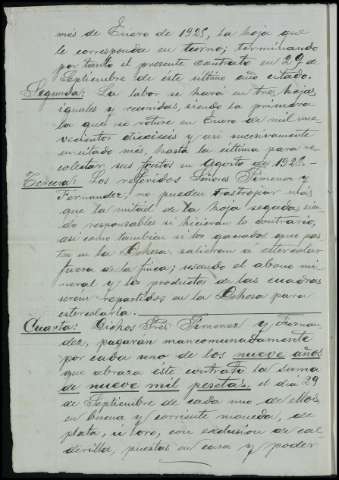 más de Enero de 1925, la hoja que
le corresponda en turno; terminando
por tanto el presente contrato en 29 de
Septiembre de este último año citado.
Segunda: La labor se hará en tres hojas,
iguales y reunidas, siendo la primera
la que se roture en Enero de mil nue
vecientos dieciseis y así sucesivamente
en citado mes, hasta la última para re
colectar sus frutos en Agosto de 1925.-
Tercera: Los referidos Señores Simenez y
Fernandez, no pueden rastrojar más
que la mitad de la hoja segada, sien
do responsables si hicieran lo contrario,
así como tambien si los ganados que pas
ten en la Dehesa, salieran a estercolar
fuera de la finca; usando el abono mi
neral y los productos de las cuadras
seran repartidos en la Dehesa para
estercolarla.
Cuarta: Dichos Sres Simenez y Fernan
dez, pagarán mancomunadamente
por cada uno de los nueve años
que abraza este contrato la suma
de nueve mil pesetas, el dia 29
de Septiembre de cada uno de ellos
en buena y corriente moneda, de
plata, u oro, con exclusion de cal
derilla, puestas en casa y poder